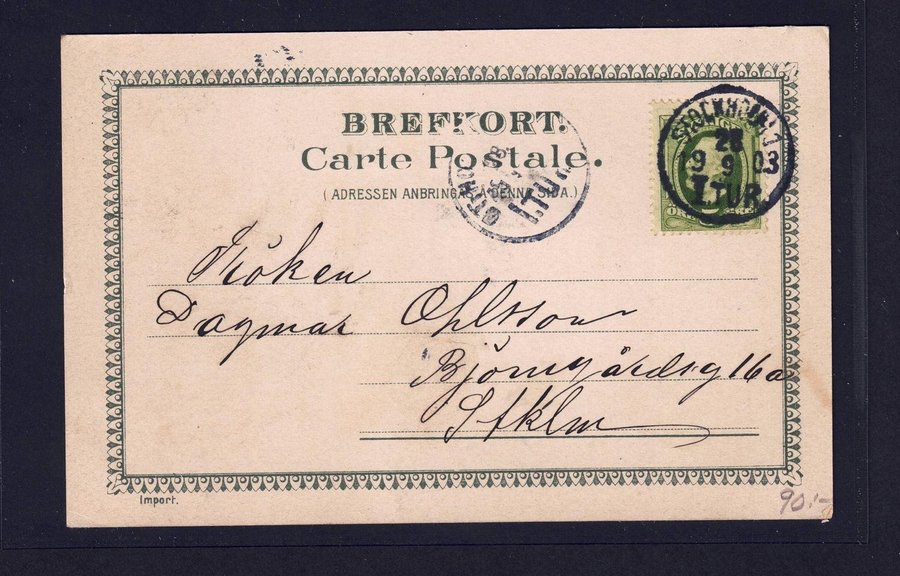 BREFKORT.
Carte Postale.
(ADRESSEN ANBRINGAS Å DENNA SIDA.)
STOCKHOLM 1
28
9 9 03
1.TUR.
1.TUR.
Fröken
Dagmar Ohlsson
Björngårdsg 16a
Stklm
Import.
90:-